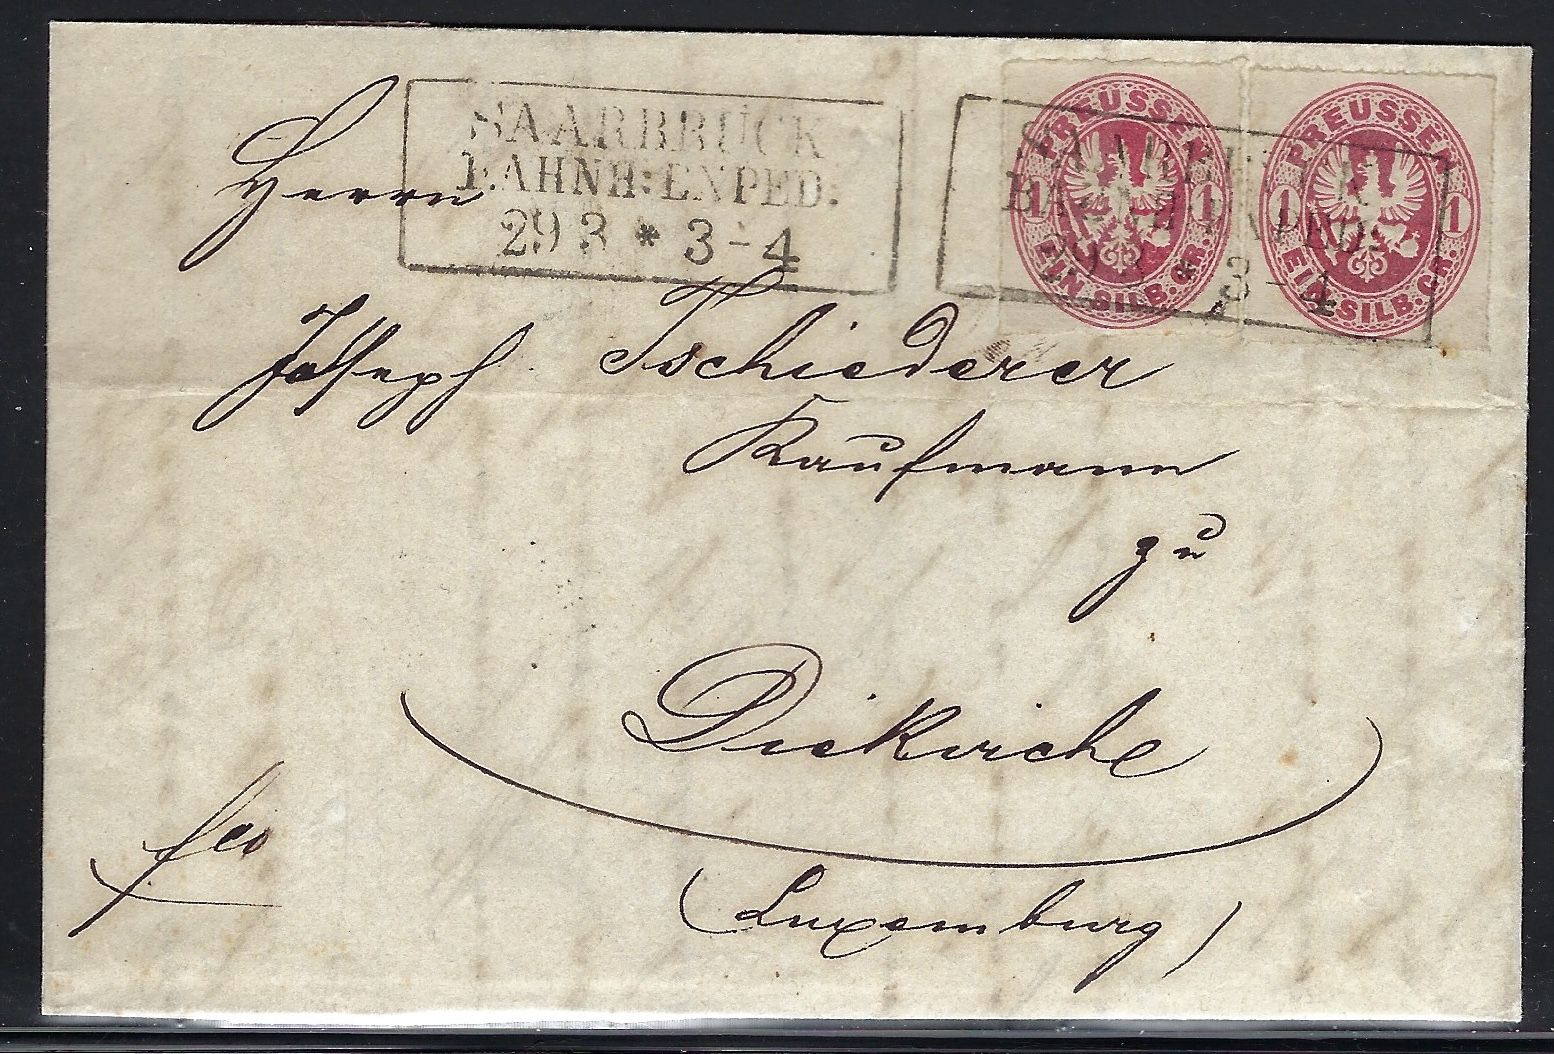 SAARBRÜCK
BAHNH: EXPED:
29 3 * 3-4
SAARBRÜCK
BAHNH: EXPED:
29 3 * 3-4
PREUSSEN
1 1
EIN SILB. GR.
PREUSSEN
1 1
EIN SILB. GR.
Herrn
Joseph Tschiederer
Kaufmann
zu
Diekirche
fco
(Luxemburg)